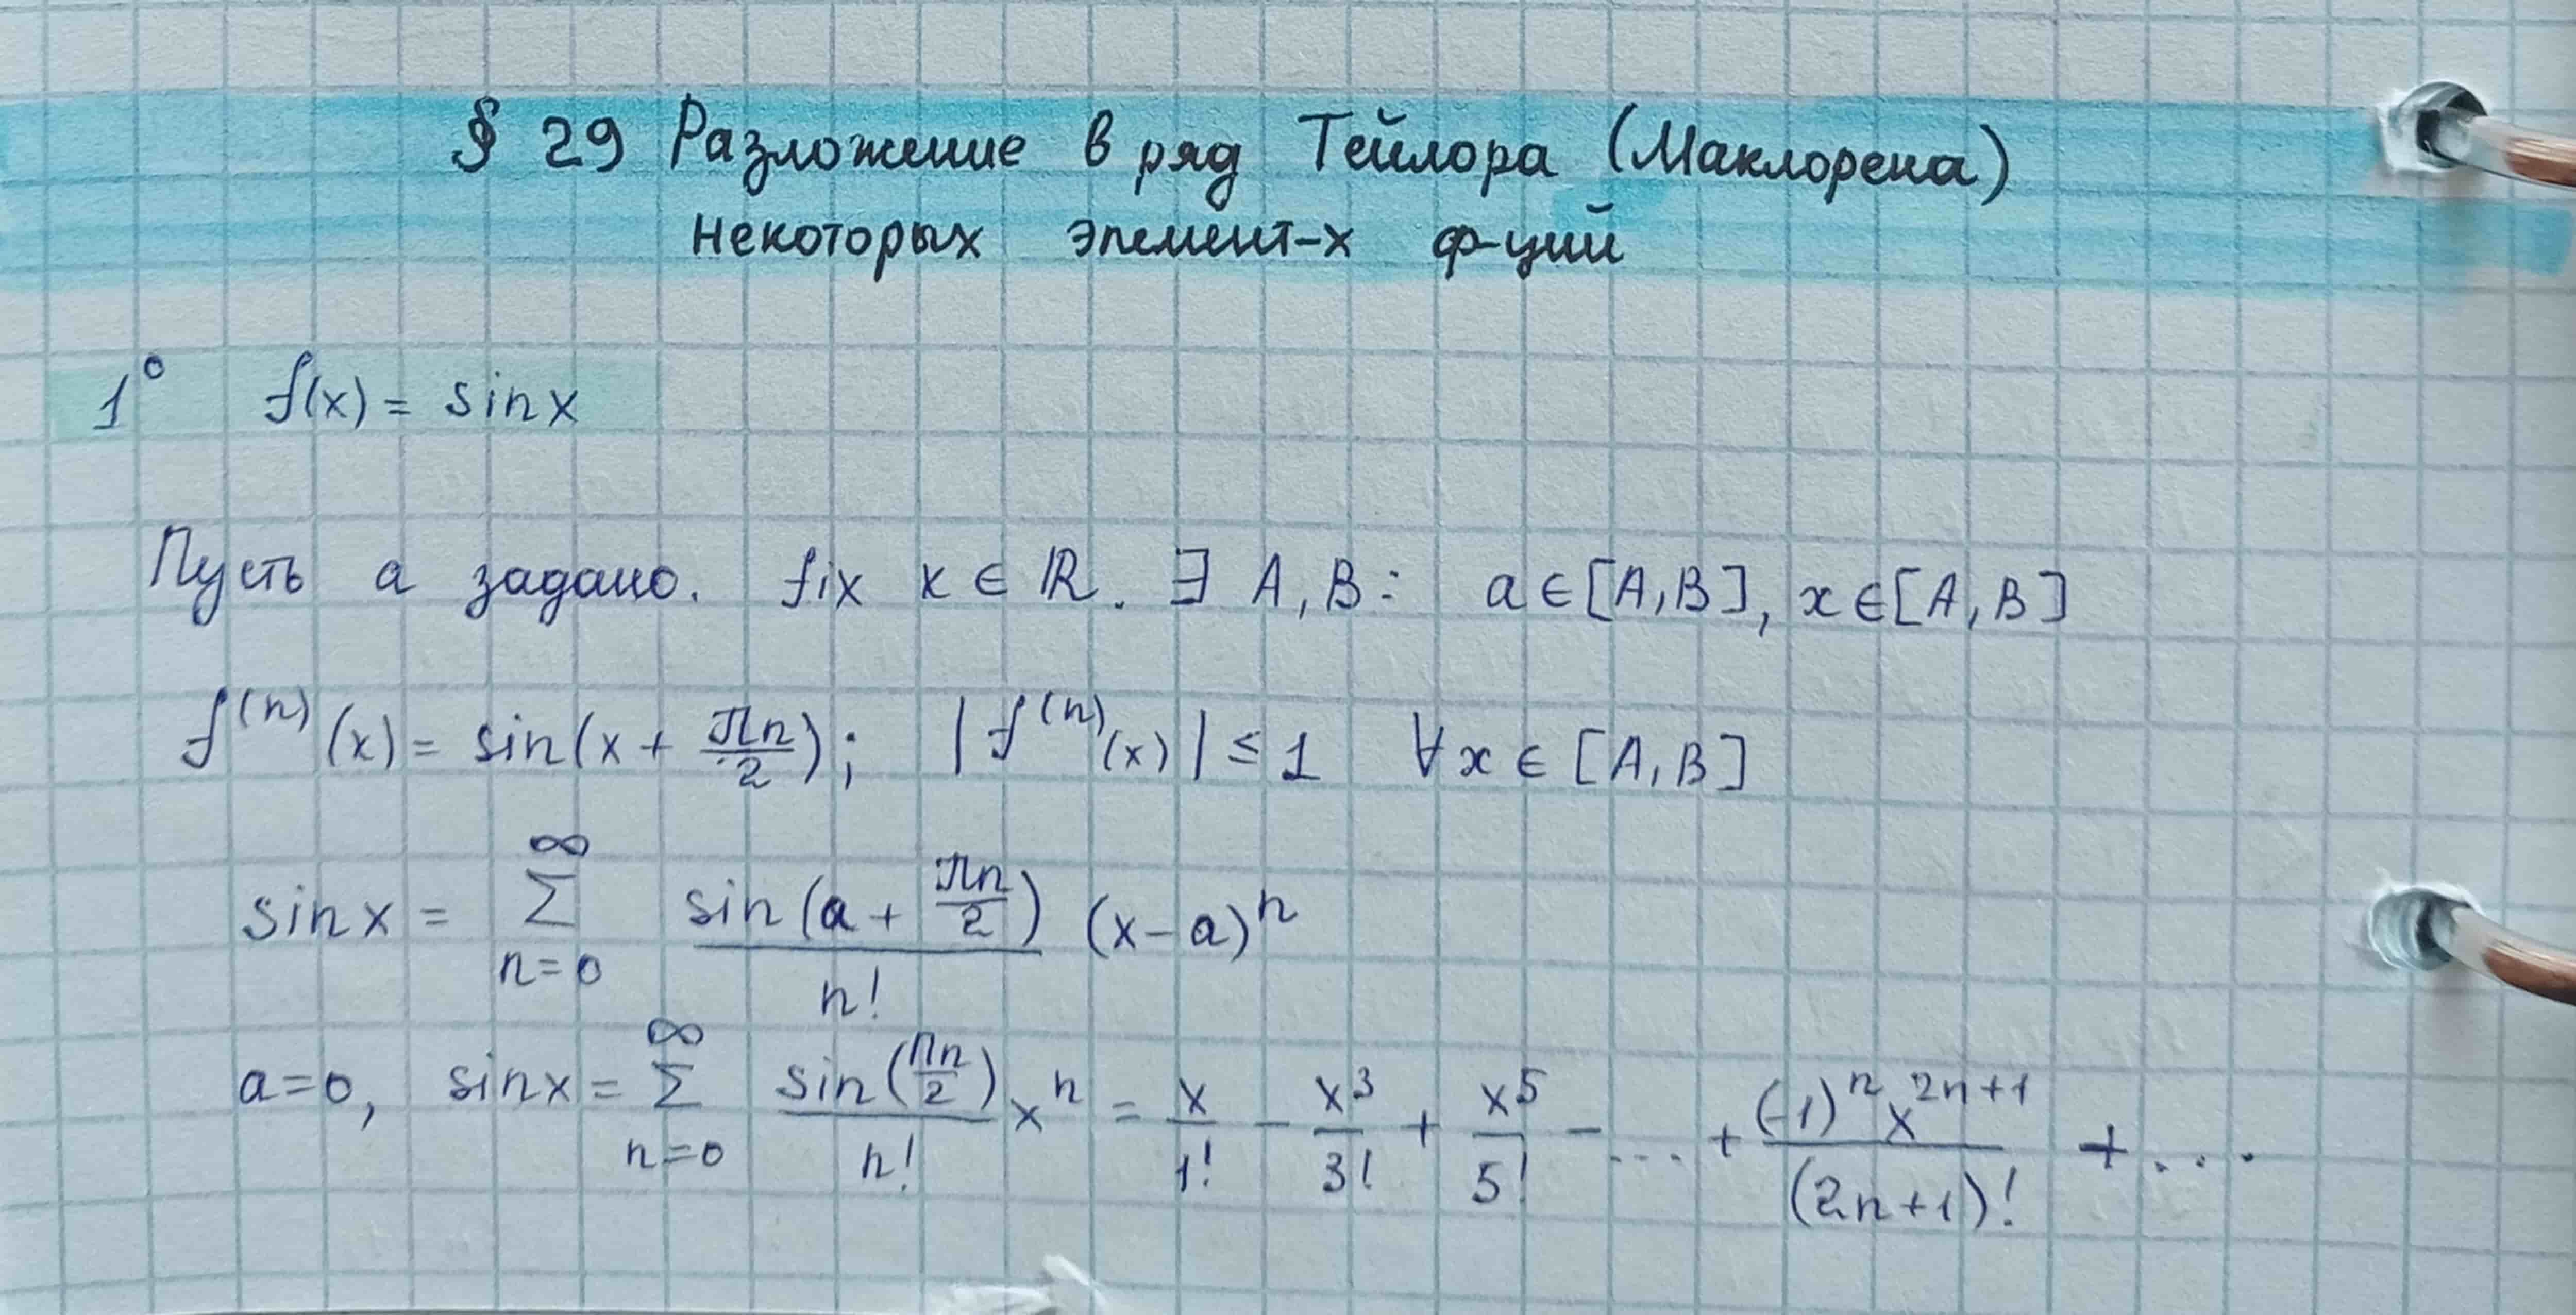 § 29 Разложение в ряд Тейлора (Маклорена)
некоторых элемент-х ф-ций
1° f(x) = sin x
Пусть a задано. fix x ∈ ℝ. ∃ A, B: a ∈ [A, B], x ∈ [A, B]
f⁽ⁿ⁾(x) = sin(x + πn/2); |f⁽ⁿ⁾(x)| ≤ 1 ∀x ∈ [A, B]
sin x = ∑_{n=0}^{∞} sin(a + πn/2)/n! (x - a)ⁿ
a = 0, sin x = ∑_{n=0}^{∞} sin(πn/2)/n! xⁿ = x/1! - x³/3! + x⁵/5! - ... + (-1)ⁿx²ⁿ⁺¹/(2n+1)! + ...